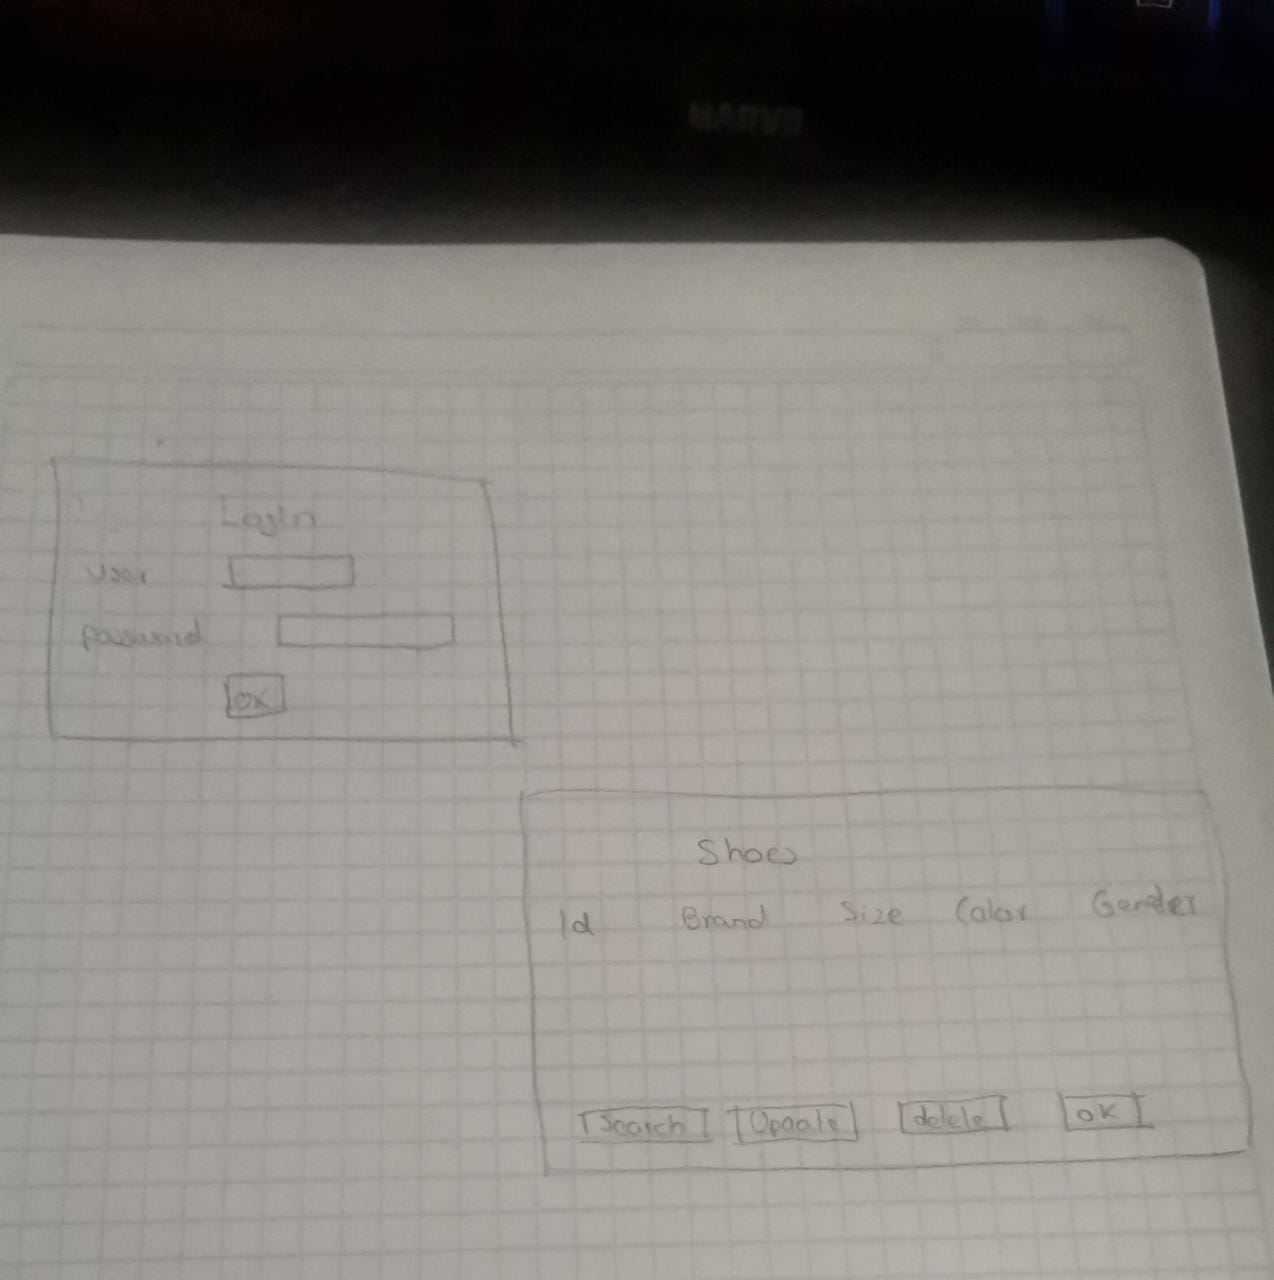 MARVO
Login
User
password
OK
Shoes
Id Brand Size Color Gender
Search Update delete OK